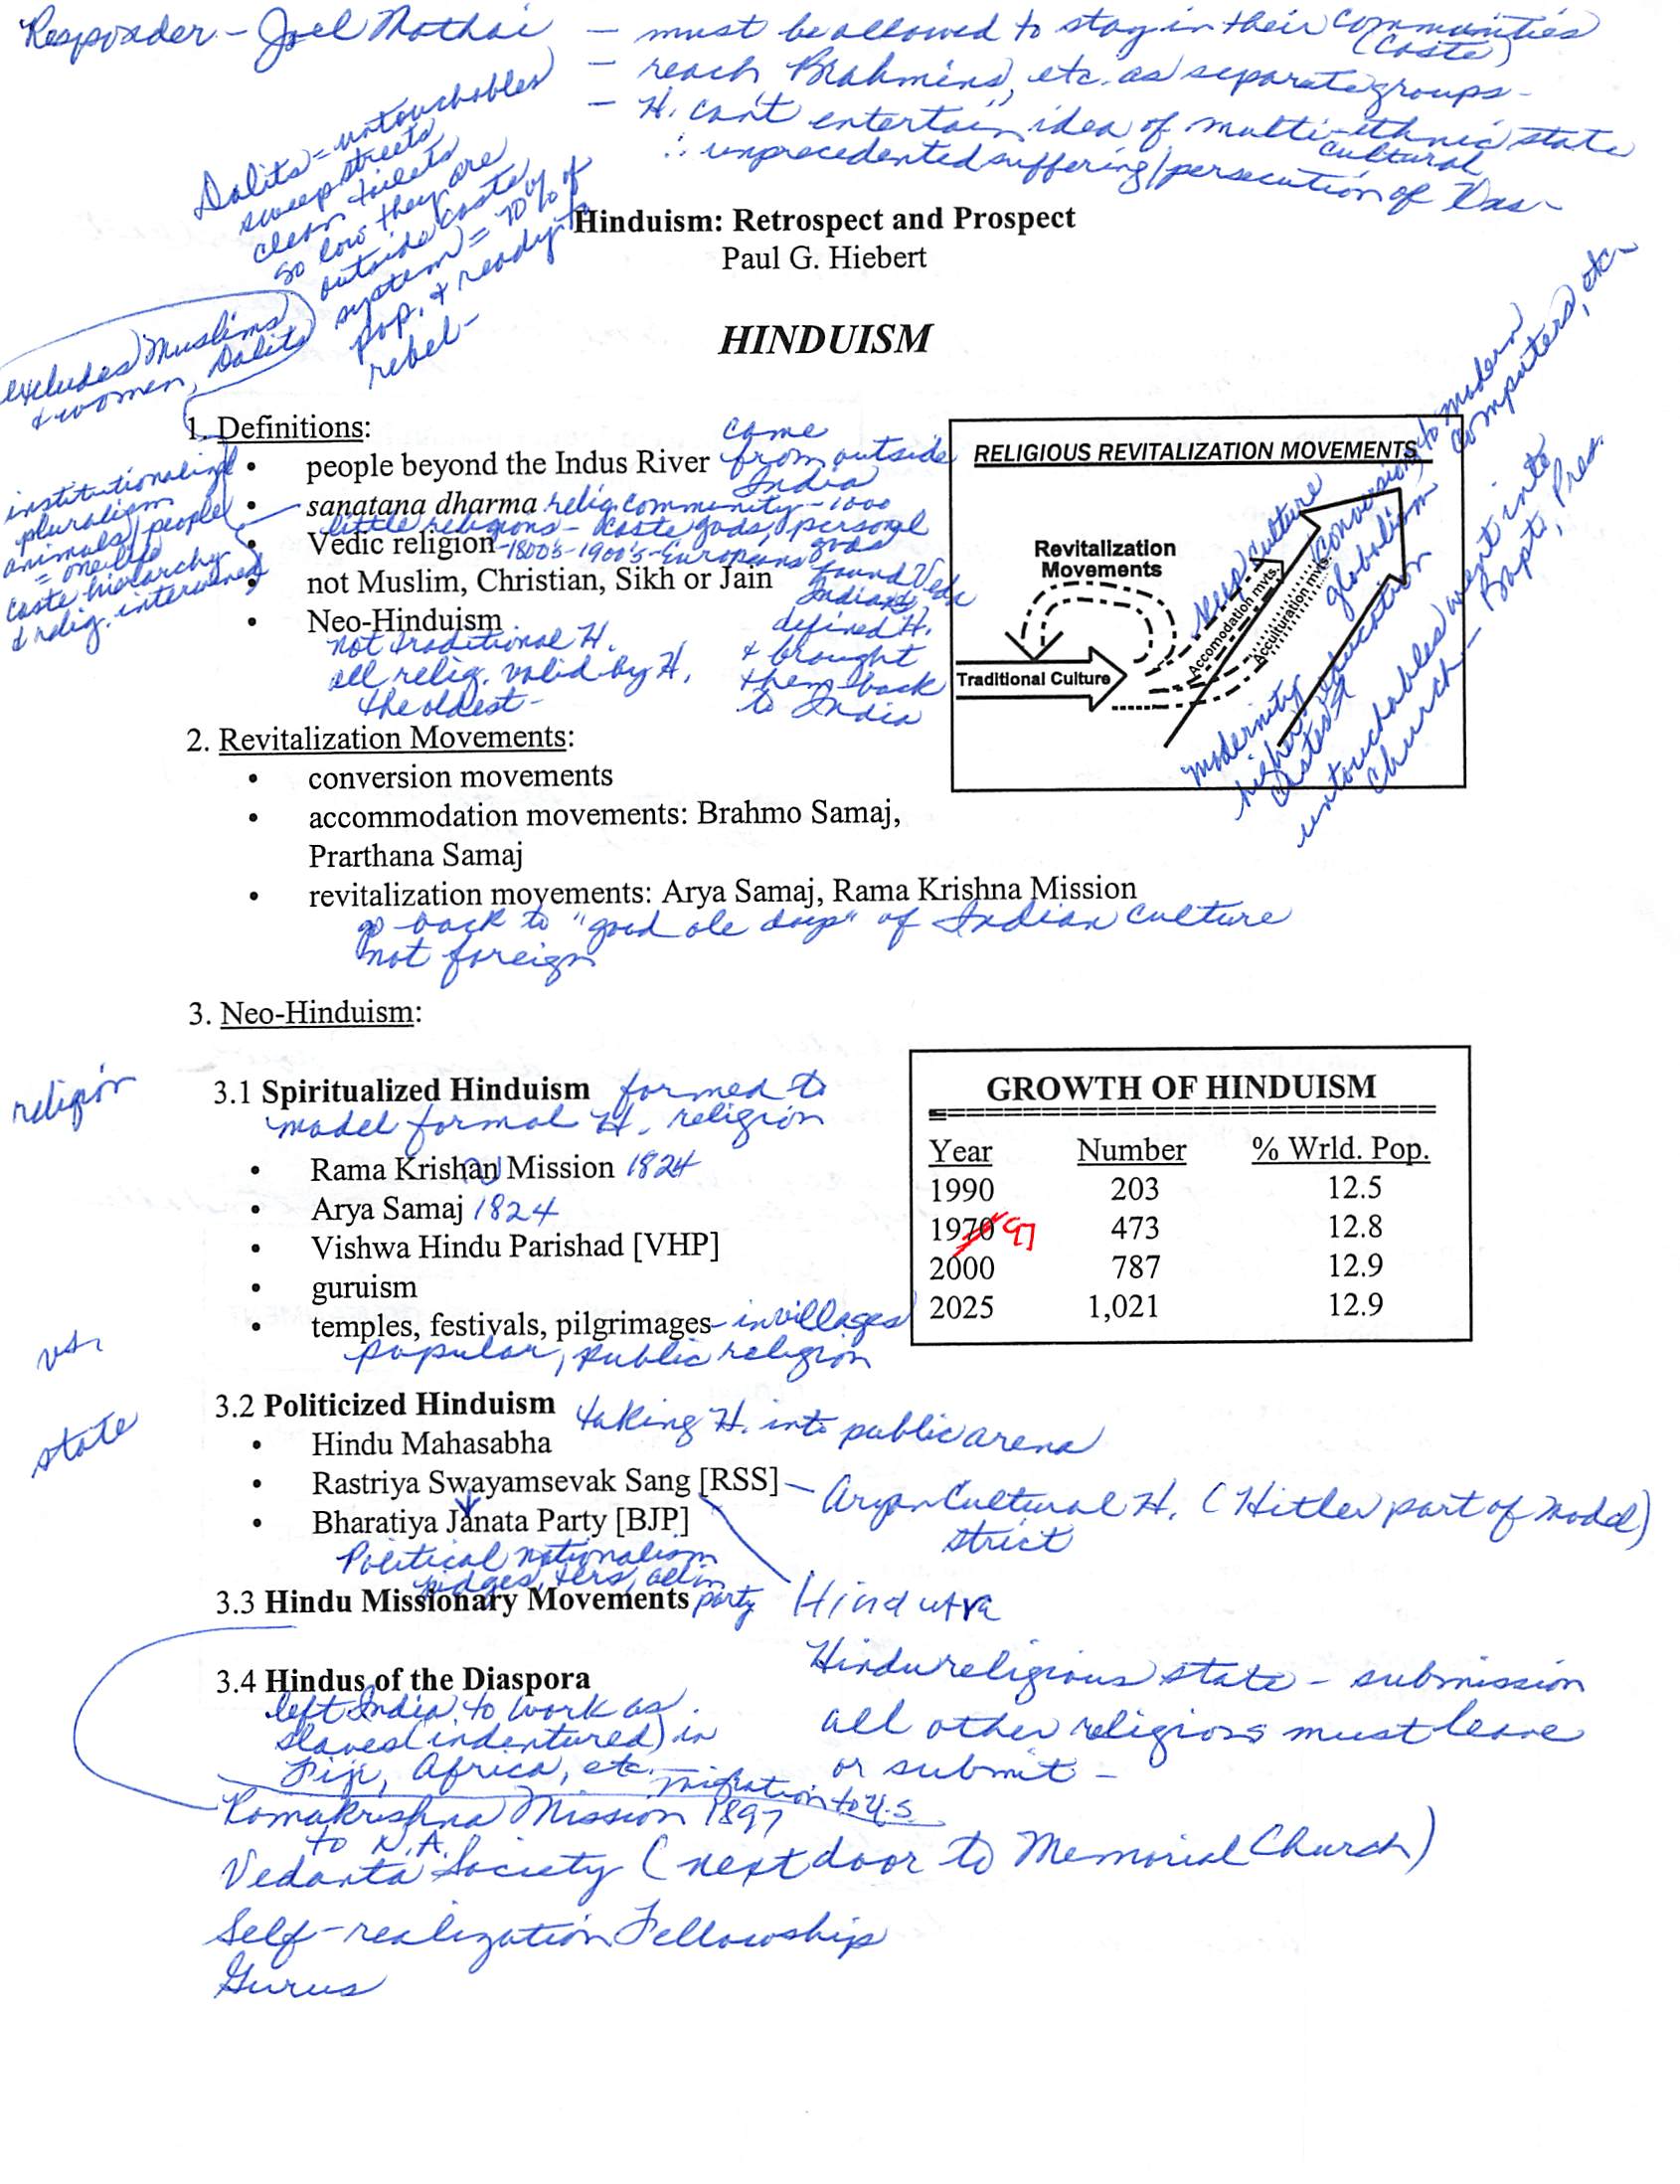 Responder - Joel Mathai
- must be allowed to stay in their communities
(caste)
- reach Brahmins, etc. as separate groups -
- H. can't entertain idea of multi-ethnic state
cultural
∴ unprecedented suffering/persecution of
Dalits = untouchables
sweep streets
clean toilets
so low they are
outside caste
system = 70% of
pop. & ready to
rebel -
excludes Muslims
& women, Dalits
Hinduism: Retrospect and Prospect
Paul G. Hiebert
HINDUISM
1. Definitions:
• people beyond the Indus River
came
from outside
India
• sanatana dharma relig. community - 1000
little religions - caste gods, personal
gods
• Vedic religion - 1800's-1900's - Europeans
found Veda
• not Muslim, Christian, Sikh or Jain
Indians
defined H.
& brought
them back
to India
• Neo-Hinduism
not traditional H.
all relig. valid by H,
the oldest -
institutionalized
pluralism
animals/people
= one life
caste hierarchy
& relig. intertwined
RELIGIOUS REVITALIZATION MOVEMENTS
Revitalization
Movements
Traditional Culture
Accomodation mvts.
Acculturation mvts.
keep culture
conversion to modern
globalism
computers, etc -
modernity
higher education
castes
untouchables went into
church - Bapt., Pres.
2. Revitalization Movements:
• conversion movements
• accommodation movements: Brahmo Samaj,
Prarthana Samaj
• revitalization movements: Arya Samaj, Rama Krishna Mission
go back to "good ole days" of Indian culture
not foreign
3. Neo-Hinduism:
religion
3.1 Spiritualized Hinduism formed to
model formal H. religion
• Rama Krishan Mission 1824
• Arya Samaj 1824
• Vishwa Hindu Parishad [VHP]
• guruism
• temples, festivals, pilgrimages - in villages
popular, public religion
GROWTH OF HINDUISM
Year Number % Wrld. Pop.
1990 203 12.5
1970 97 473 12.8
2000 787 12.9
2025 1,021 12.9
vs.
state
3.2 Politicized Hinduism taking H. into public arena
• Hindu Mahasabha
• Rastriya Swayamsevak Sang [RSS] - Aryan Cultural H. (Hitler part of model)
strict
• Bharatiya Janata Party [BJP]
Political nationalism
judges, all in
party
Hindutva
3.3 Hindu Missionary Movements
Hindu religious state - submission
all other religions must leave
or submit -
3.4 Hindus of the Diaspora
left India to work as
slaves (indentured) in
Fiji, Africa, etc. migration to U.S.
Ramakrishna Mission 1897
to N.A.
Vedanta Society (next door to Memorial Church)
Self-realization Fellowship
Gurus